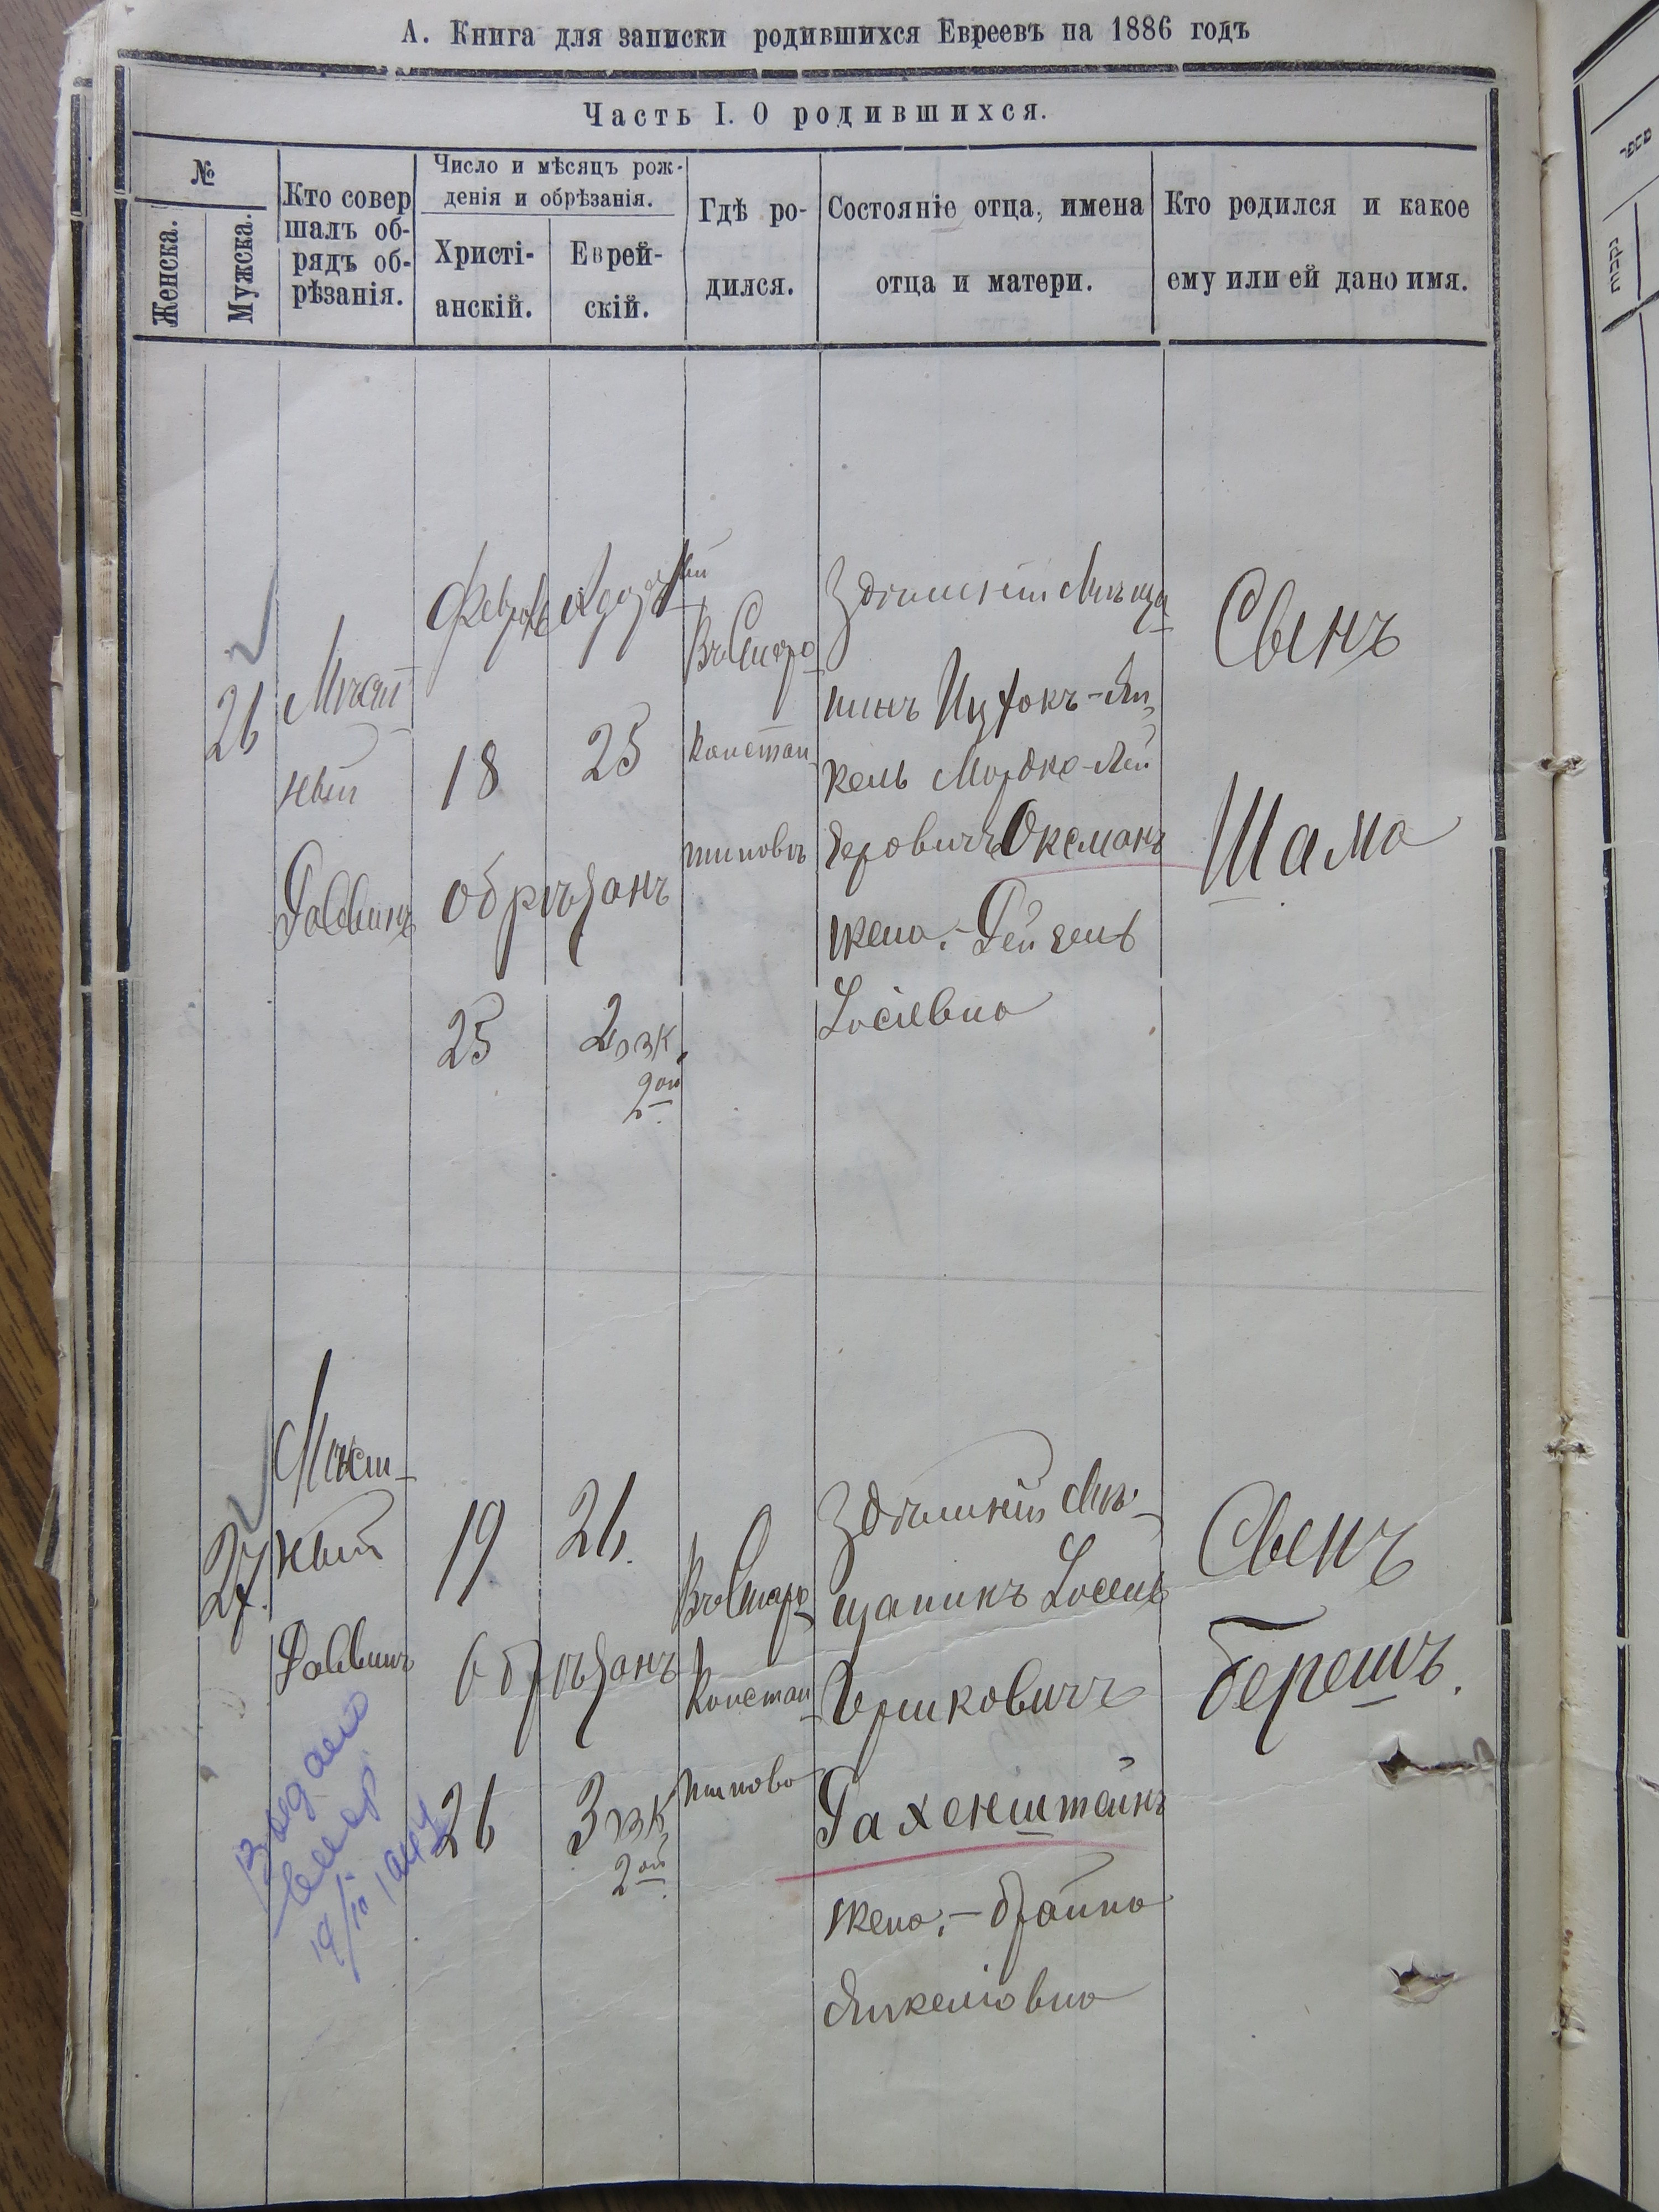 А. Книга для записки родившихся Евреевъ на 1886 годъ
Часть I. О родившихся.
№
Женска.
Мужска.
Кто совер
шалъ об-
рядъ об-
рѣзанія.
Число и мѣсяцъ рож-
денія и обрѣзанія.
Христі-
анскій.
Еврей-
скій.
Гдѣ ро-
дился.
Состояніе отца, имена
отца и матери.
Кто родился и какое
ему или ей дано имя.
26
Мѣст-
ный
Раввинъ
18
25
обрѣзанъ
25
2
2ой
Въ Старо
констан
тиновѣ
Здѣшній Мѣща
нинъ Ицхокъ-Ян
кель Мордко-Лей
беровичъ Оксманъ
жена:- Рейзель
Іосіевна
Сынъ
Шама
27.
Мѣст-
ный
Раввинъ
19
26.
обрѣзанъ
26
3
2ой
Въ Старо
констан
тиново
Здѣшній Мѣ-
щанинъ Іосель
Гершковичъ
Рахенштейнъ
жена:- Брайна
Янкеліовна
Сынъ
Берешъ.
Выдано